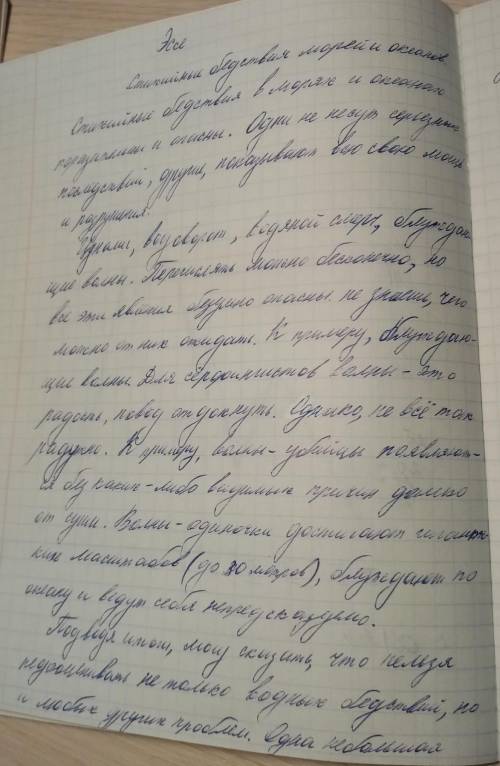 Эссе
Стихийные бедствия морей и океанов
Стихийные бедствия в морях и океанах
и опасны. Одни не несут серьезных
последствий, другие, показывают всю свою мощь
и разрушения.
Цунами, водоворот, водяной смерч, блуждаю-
щие волны. Перечислять можно бесконечно, но
все эти явления безумно опасны. не знаешь, чего
можно от них ожидать. К примеру, блуждаю-
щие волны. Для сёрфингистов волны - это
радость, повод отдохнуть. Однако, не всё так
радужно. К примеру, волны-убийцы появляют-
ся без каких-либо видимых причин далеко
от суши. Волны-одиночки достигают гигантс-
ких масштабов (до 30 метров), блуждают по
океану и ведут себя непредсказуемо.
Подводя итог, могу сказать, что нельзя
недооценивать не только водных бедствий, но
и любых других проблем. Одна небольшая